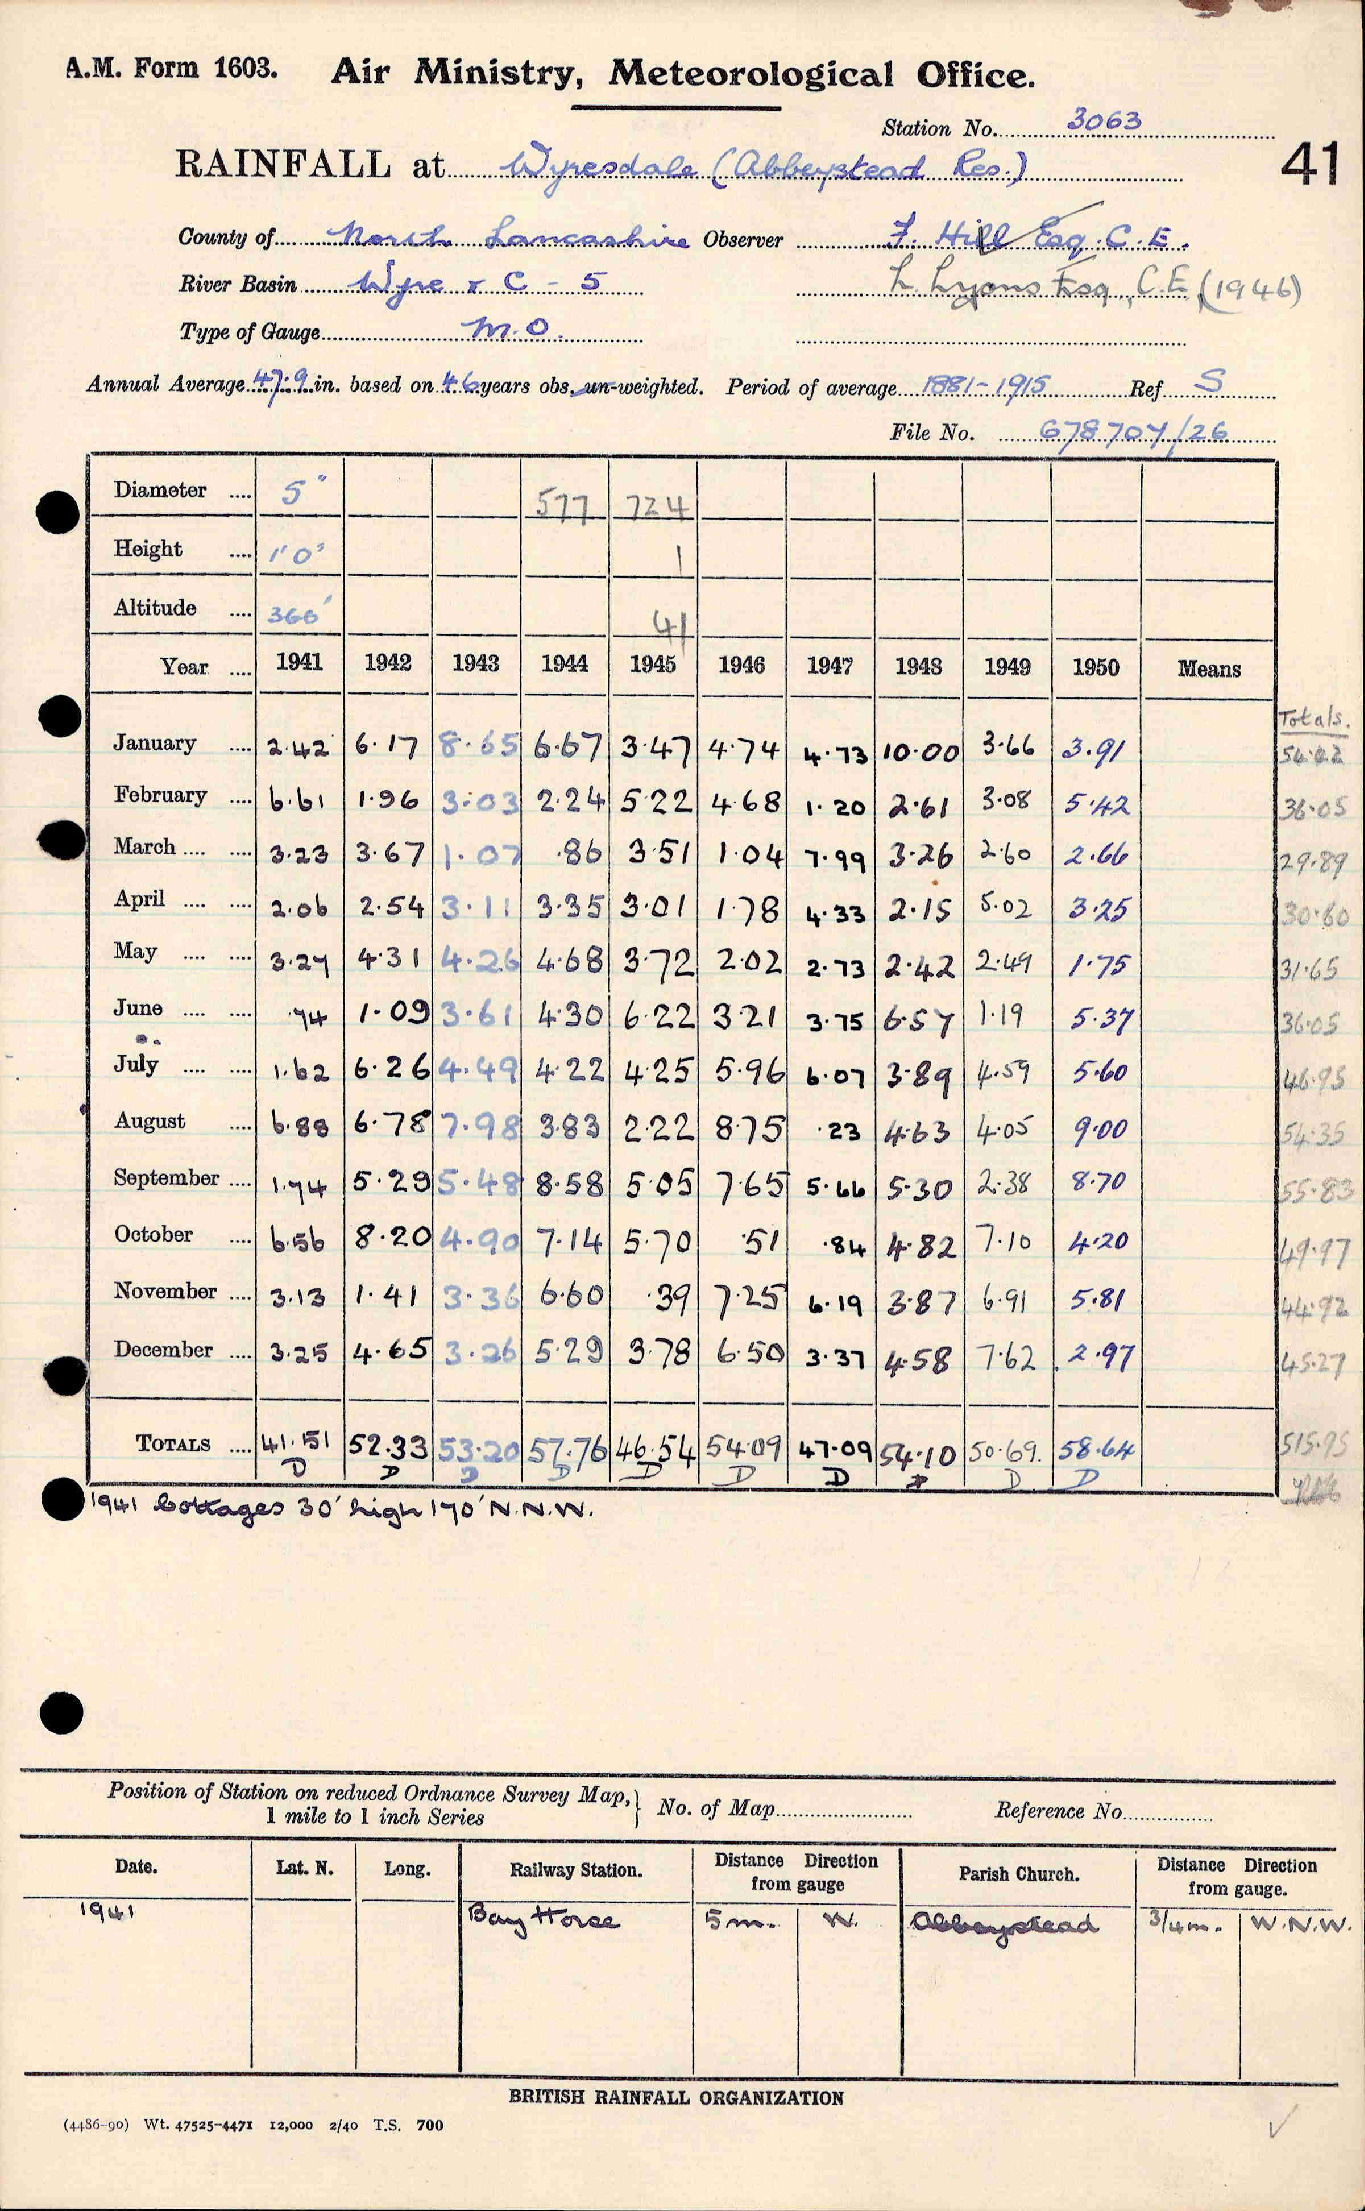 A.M. Form 1603. Air Ministry, Meteorological Office.
Station No. 3063
41
RAINFALL at Wyresdale (Abbeystead Res.)
County of North Lancashire Observer F. Hill Esq. C.E.
River Basin Wyre & C - 5 L. Lyons Esq., C.E. (1946)
Type of Gauge M.O.
Annual Average 47.9 in. based on 46 years obs. un-weighted. Period of average 1881-1915 Ref S
File No. 678704/26
Diameter .... 5" 577 724
Height .... 1'0" 1
Altitude .... 41
Year .... 1941 1942 1943 1944 1945 1946 1947 1948 1949 1950 Means
Totals.
January .... 2.42 6.17 8.65 6.67 3.47 4.74 4.73 10.00 3.66 3.91
February .... 6.61 1.96 3.03 2.24 5.22 4.68 1.20 2.61 3.08 5.42 36.05
March .... .... 3.23 3.67 1.07 .86 3.51 1.04 7.99 3.26 2.60 2.66 29.89
April .... .... 2.06 2.54 3.11 3.35 3.01 1.78 4.33 2.15 5.02 3.25 30.60
May .... .... 3.27 4.31 4.26 4.68 3.72 2.02 2.73 2.42 2.49 1.75 31.65
June .... .... .74 1.09 3.61 4.30 6.22 3.21 3.75 6.57 1.19 5.37 36.05
July .... .... 1.62 6.26 4.49 4.22 4.25 5.96 6.07 3.89 4.59 5.60 46.95
August .... 6.88 6.78 7.98 3.83 2.22 8.75 .23 4.63 4.05 9.00 54.35
September .... 1.74 5.29 5.48 8.58 5.05 7.65 5.66 5.30 2.38 8.70 55.83
October .... 6.56 8.20 4.90 7.14 5.70 .51 .84 4.82 7.10 4.20 49.97
November .... 3.13 1.41 3.36 6.60 .39 7.25 6.19 3.87 6.91 5.81 44.92
December .... 3.25 4.65 3.26 5.29 3.78 6.50 3.37 4.58 7.62 2.97 45.27
TOTALS .... 41.51 52.33 53.20 57.76 46.54 54.09 47.09 54.10 50.69. 58.64 515.95
D D D D D D D D D D
1941 Cottages 30' high 170' N.N.W.
Position of Station on reduced Ordnance Survey Map,
1 mile to 1 inch Series
No. of Map Reference No.
Date. Lat. N. Long. Railway Station. Distance Direction from gauge Parish Church. Distance Direction from gauge.
1941 Bay Horse 5 m. W. Abbeystead 3/4 m. W.N.W.
BRITISH RAINFALL ORGANIZATION
(4486-90) Wt. 47525-4471 12,000 2/40 T.S. 700